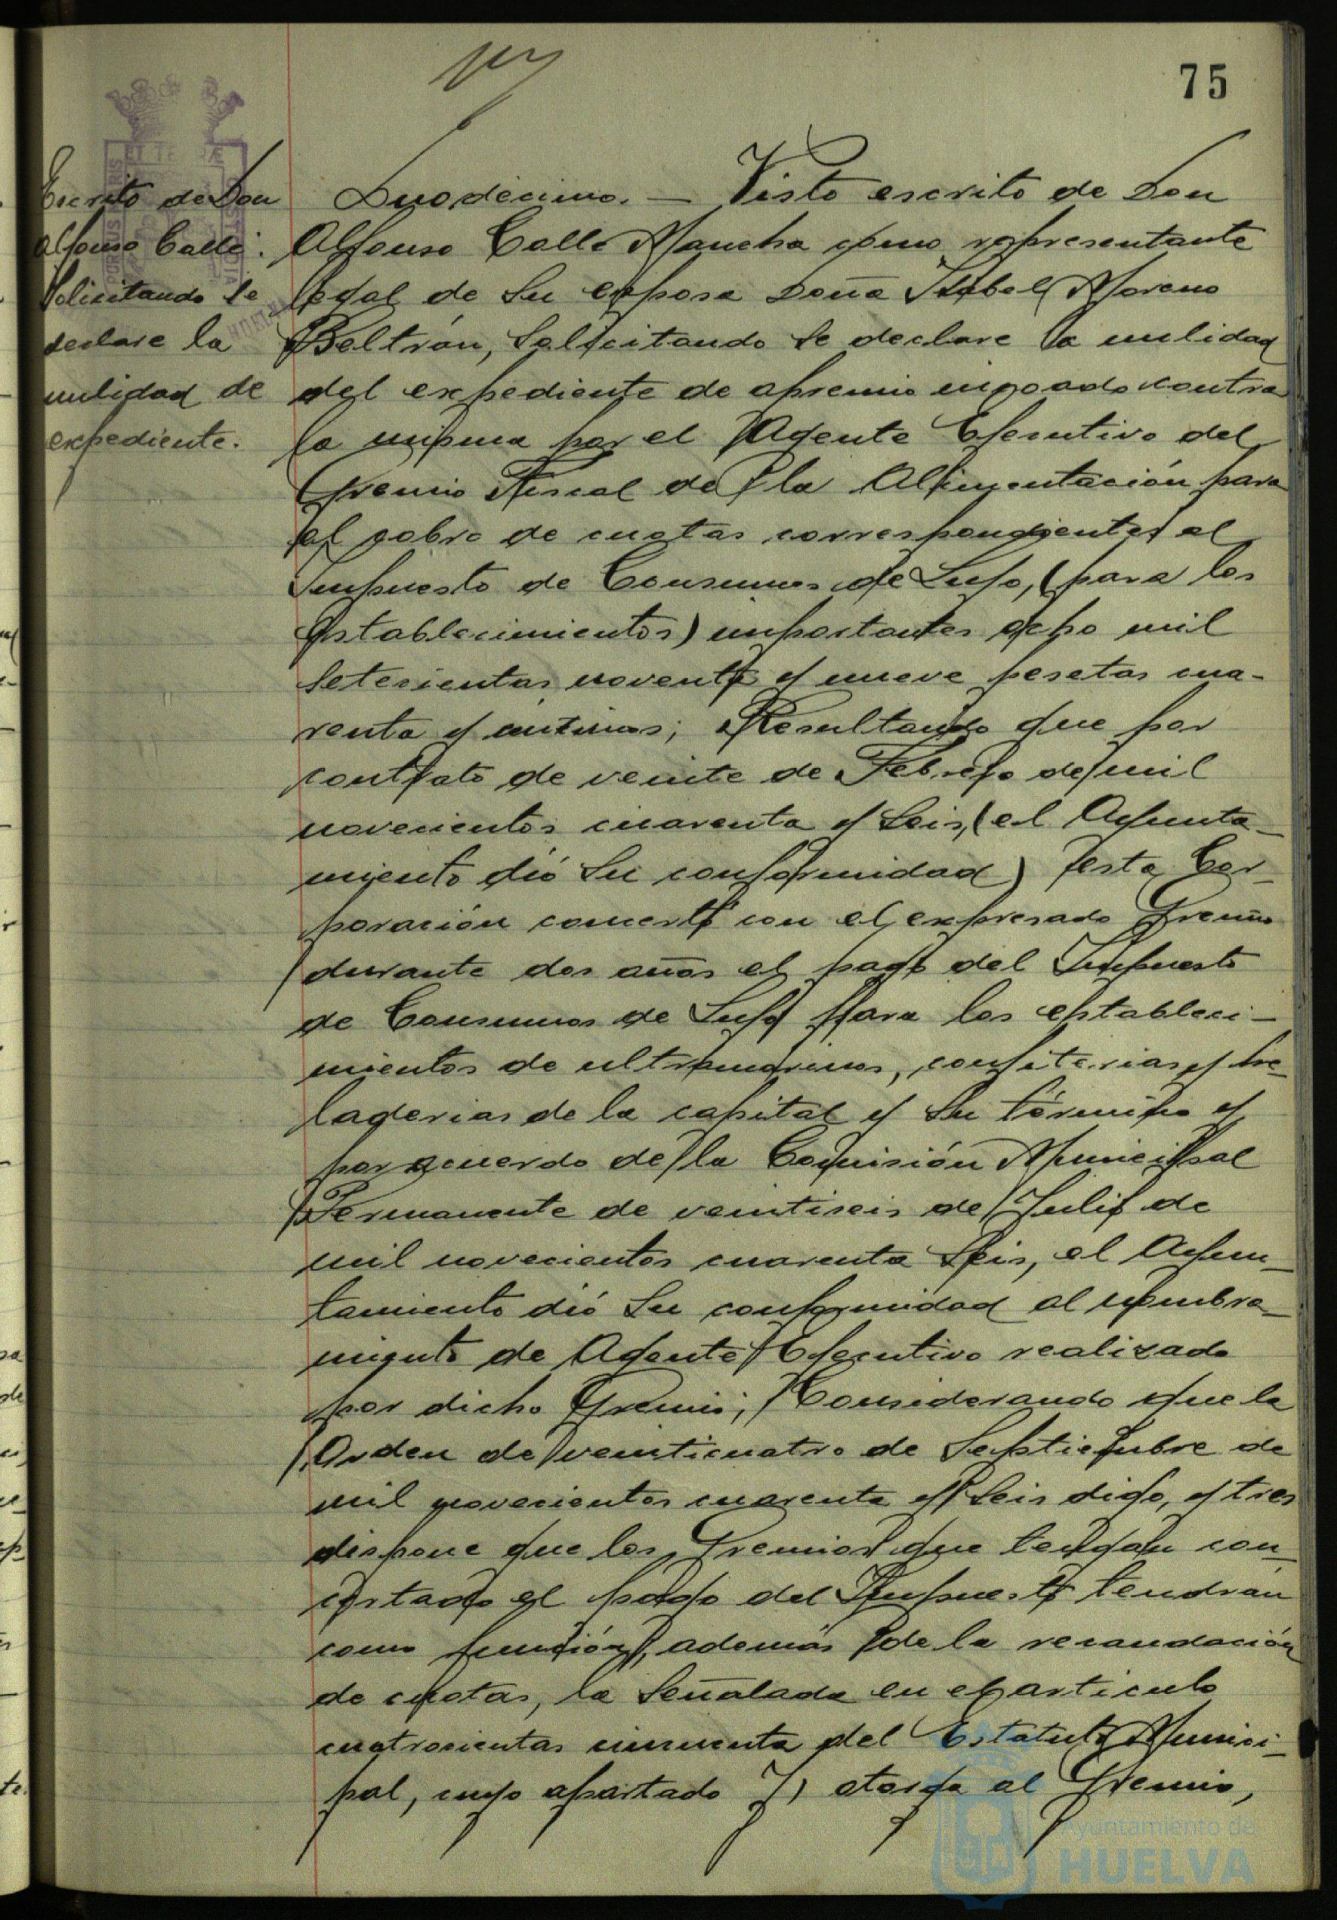 75
Escrito de Don
Alfonso Calle.
Solicitando se
declare la
nulidad de
expediente.
Duodécimo. — Visto escrito de Don
Alfonso Calle Mancha como representante
legal de su esposa Doña Isabel Moreno
Beltrán, solicitando se declare la nulidad
del expediente de apremio incoado contra
la misma por el Agente Ejecutivo del
Gremio Fiscal de la Alimentación para
el cobro de cuotas correspondientes al
Impuesto de Consumos de Lujo, (para los
establecimientos) importantes ocho mil
setecientas noventa y nueve pesetas cua-
renta y céntimos; Resultando que por
contrato de veinte de Febrero de mil
novecientos cuarenta y seis, (el Ayunta-
miento dió su conformidad) esta Cor-
poración concertó con el expresado Gremio
durante dos años el pago del Impuesto
de Consumos de Lujo para los estableci-
mientos de ultramarinos, confiterias y he-
laderias de la capital y su término y
por acuerdo de la Comisión Municipal
Permanente de veintiseis de Julio de
mil novecientos cuarenta seis, el Ayun-
tamiento dió su conformidad al nombra-
miento de Agente Ejecutivo realizado
por dicho Gremio; Considerando que la
Orden de veinticuatro de Septiembre de
mil novecientos cuarenta y seis digo, y tres
dispone que los Gremios que tengan con-
certado el pago del Impuesto tendrán
como función, además de la recaudación
de cuotas, la señalada en el articulo
cuatrocientos cincuenta del Estatuto Munici-
pal, cuyo apartado otorga al Gremio,
Ayuntamiento de
HUELVA